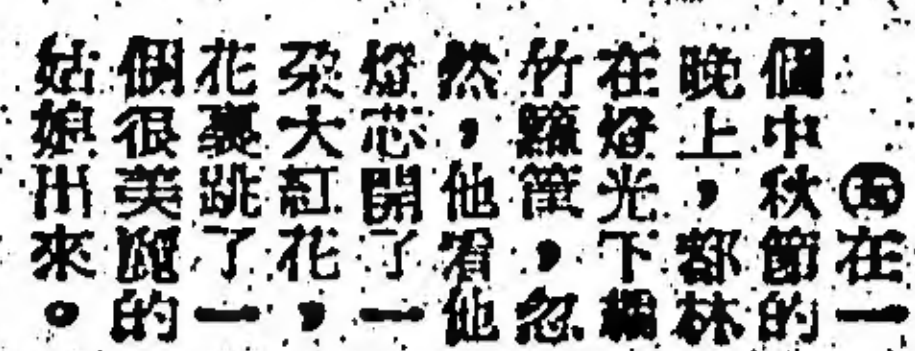 ㊄在一
個中秋節的
晚上，都林
在燈光下編
竹籮筐，忽
然，他看他
燈芯開了一
朵大紅花，
花裏跳了一
個很美麗的
姑娘出來。